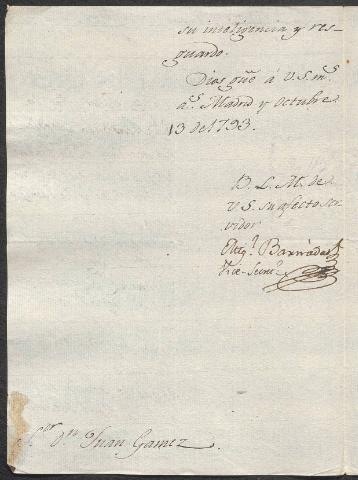 su inteligencia y res-
guardo.
Dios gue. á V.S. ms.
as. Madrid y Octubre
13 de 1793.
B. L. M. de
V S. su afecto ser-
vidor
Barnades
Vice-Secreto.
Sor. Dn. Juan Gamez.